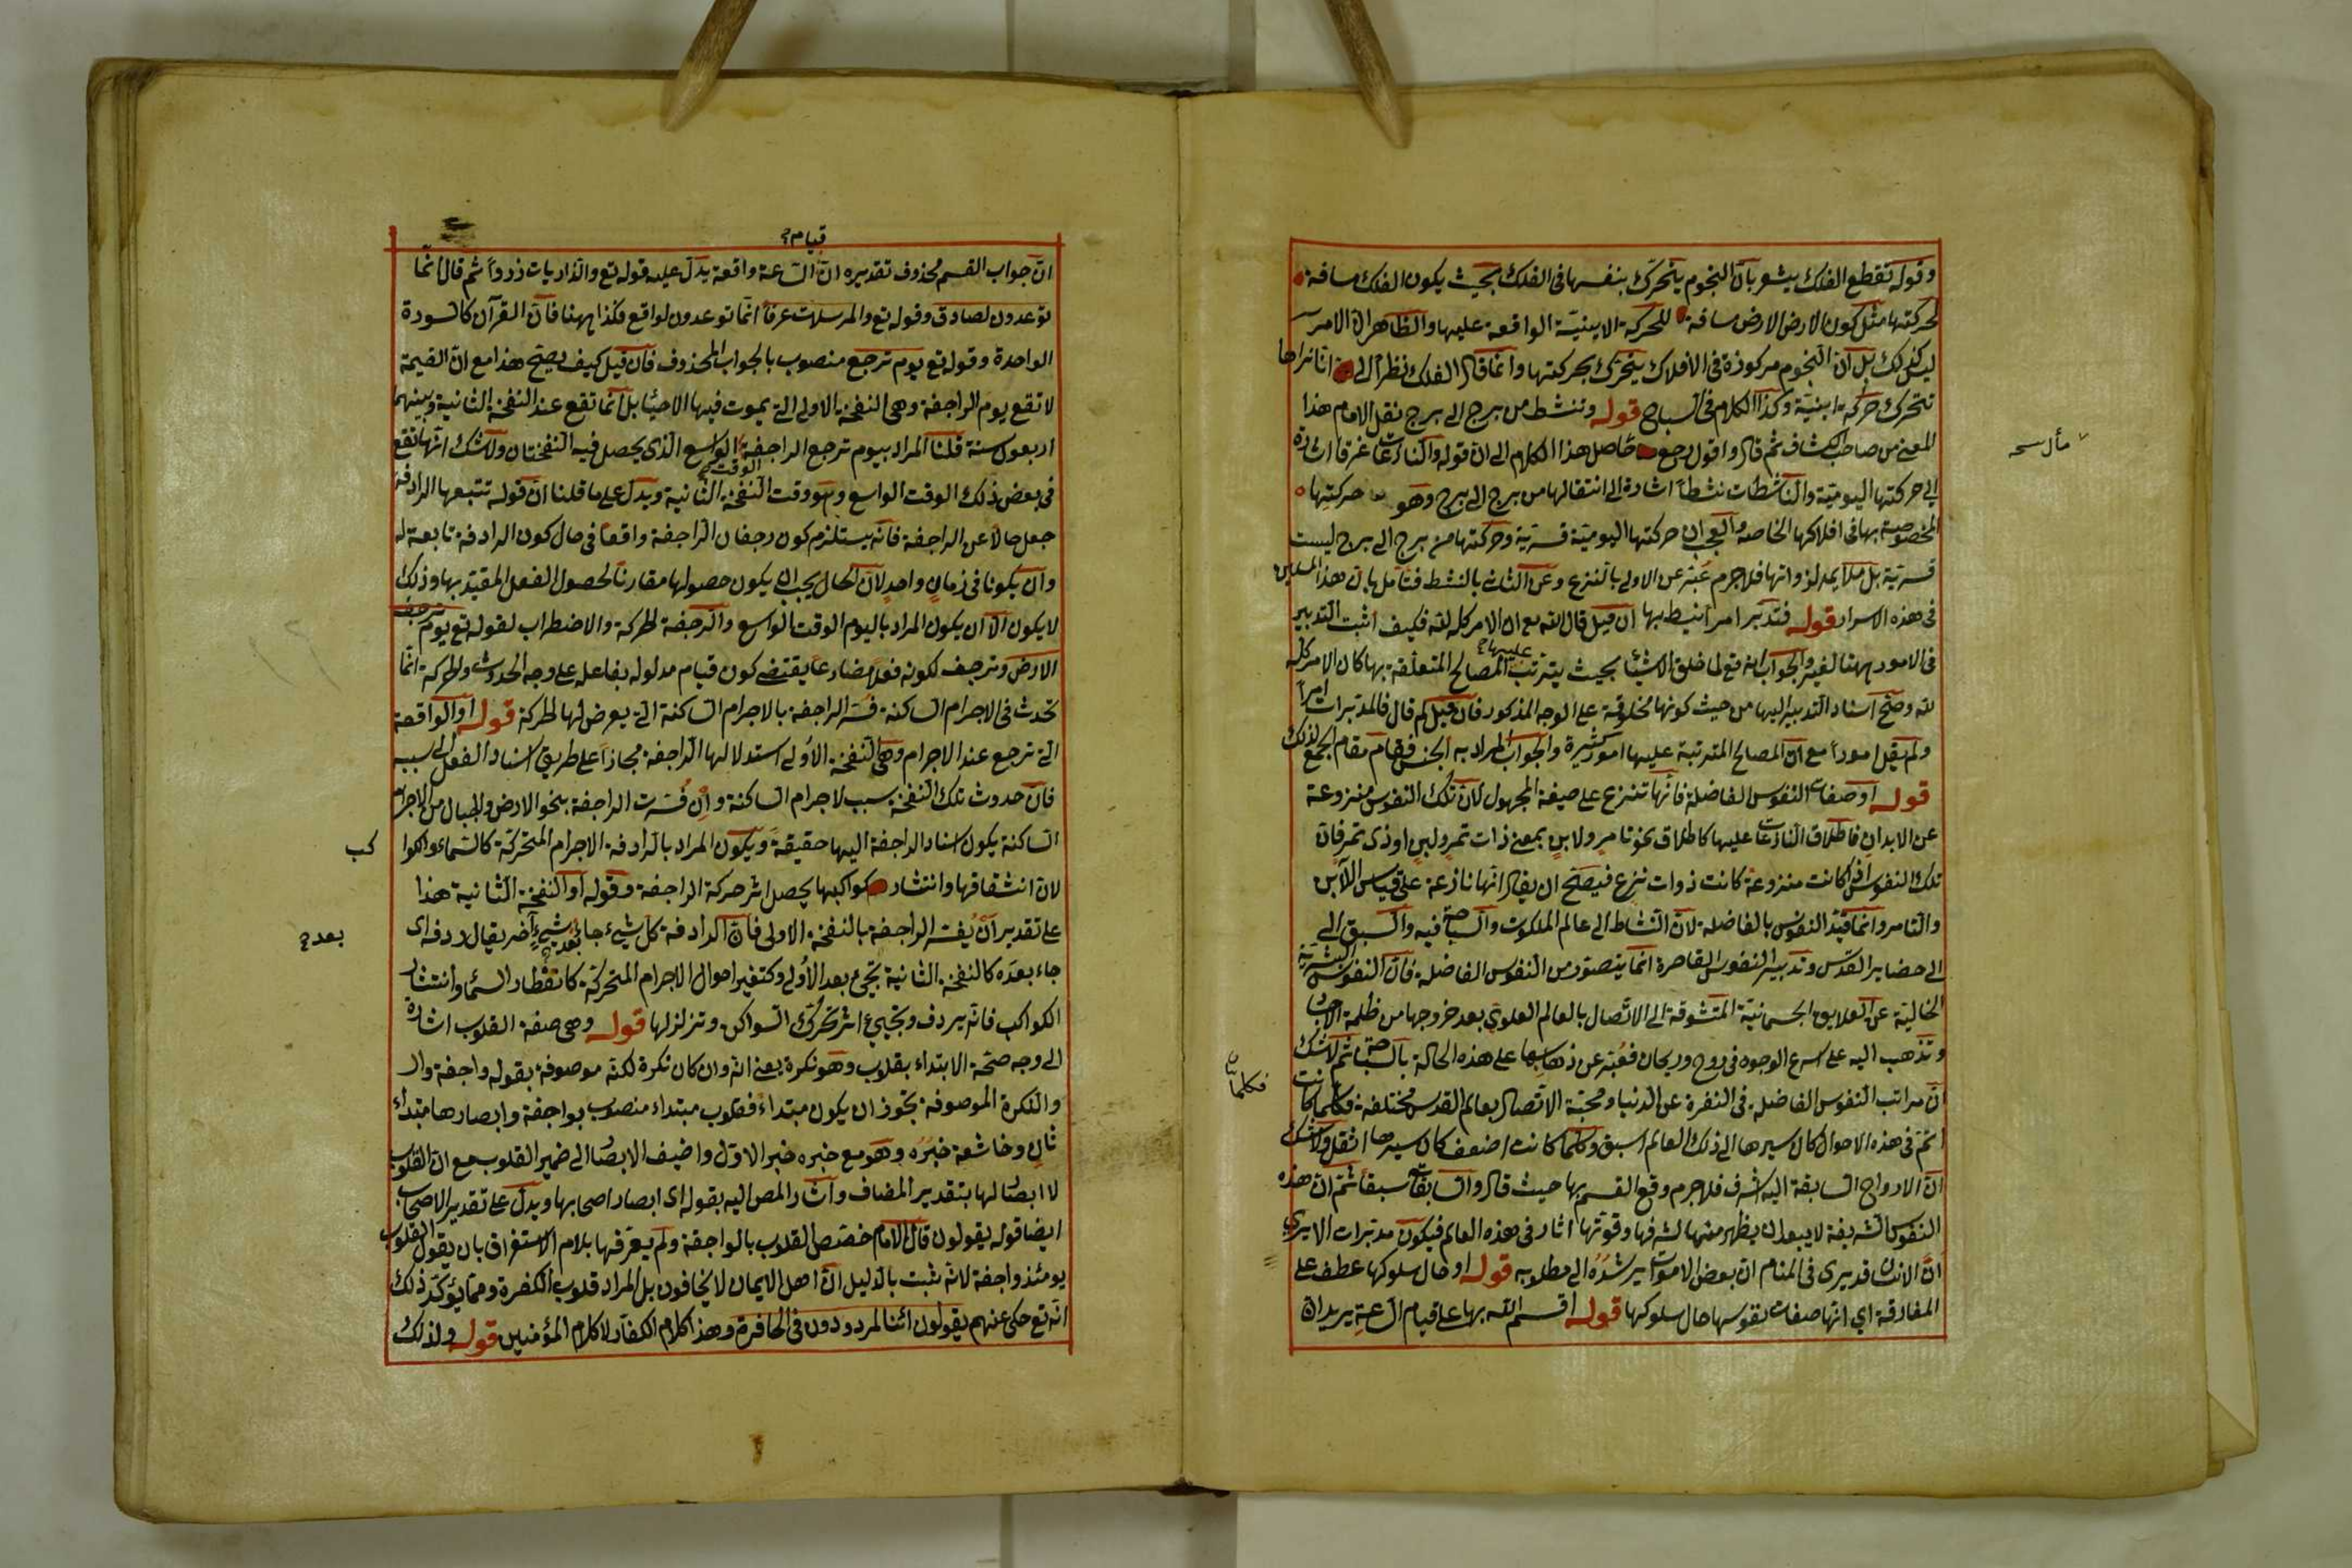 وقوله تقطع الفلك يشعر بانّ النجوم يتحرّك بنفسها فى الفلك بحيث يكون الفلك مسافة
لحركتها مثل كون الارض مسافة للحركة الاينيّة الواقعة عليها والظاهر انّ الامر
ليس كذلك بل انّ النجوم مركوزة فى الافلاك يتحرّك بحركتها وانّما قال الفلك نظراً الى انّا نراها
تتحرك حركة اينيّة وكذا الكلام فى السباح قوله وتنشط من برج الى برج نقل الامام هذا
المعنى من صاحب الكشاف ثم قال واقول رجع حاصل هذا الكلام الى ان قوله والنازعات غرقا اشارة
الى حركتها اليوميّة والناشطات نشطاً اشارة الى انتقالها من برج الى برج وهو حركتها
المخصوصة بها فى افلاكها الخاصة والعجب ان حركتها اليوميّة قسريّة وحركتها من برج الى برج ليست
قسريّة بل ملايمة لذواتها فلا جرم عبّر عن الاولى بالنزع وعن الثانى بالنشط فتأمل
فى هذه الاسرار قوله فتدبر امرا نيط بها ان قيل قال الله تع ان الامر كله لله فكيف اثبت التدبير
فى الامور ههنا لغيره والجواب انه تع لما خلق الاشياء بحيث يترتب عليها المصالح المتعلّقة بها كان الامر كلّه
لله وصحّ اسناد التدبير اليها من حيث كونها مخلوقة على الوجه المذكور فان قيل لم قال فالمدبّرات امراً
ولم يقل اموراً مع انّ المصالح المترتبة عليها امور كثيرة والجواب المراد به الجنس فقام مقام الجمع لذلك
قوله اوصفات النفوس الفاضلة فانّها تنزع على صيغة المجهول لانّ تلك النفوس منزوعة
عن الابدان فاطلاق النازعات عليها كاطلاق نحو تامر ولابن بمعنى ذات تمر ولبن او ذى تمر فانّ
تلك النفوس اذا كانت منزوعة كانت ذوات نزع فيصحّ ان يقال انّها نازعة على قياس اللابن
والتامر وانّما قيّد النفوس بالفاضلة لانّ النشاط الى عالم الملكوت والسباحة فيه والسبق الى
الى حضاير القدس وتدبير النفوس القاصرة انّما يتصوّر من النفوس الفاضلة فانّ النفوس البشريّة
الخالية عن العلايق الجسمانيّة المتشوقة الى الاتّصال بالعالم العلوى بعد خروجها من ظلمة
وتذهب اليه على اسرع الوجوه فى روح وريحان فعبّر عن ذهابها على هذه الحالة بالسباحة ثم لا شك
انّ مراتب النفوس الفاضلة فى النفرة عن الدنيا ومحبّة الاتصال بعالم القدس مختلفة فكلما كانت
اتمّ فى هذه الاحوال كان سيرها الى ذلك العالم اسبق وكلما كانت اضعف كان سيرها اثقل ولا شك
انّ الارواح السابقة اليه اشرف فلا جرم وقع القسم بها حيث قال والسابقات سبقاً ثمّ انّ هذه
النفوس الشريفة لا يبعد ان يظهر منها لشرفها وقوتها اثار فى هذه العالم فيكون مدبّرات الا يرى
انّ الانسان قد يرى فى المنام ان بعض الاموات يرشده الى مطلوبه قوله او حال سلوكها عطف على
المفارقة اى انّها صفات نفوسها حال سلوكها قوله اقسم الله بها على قيام الساعة يريد انّ
مأل سحه
فكلما
قيام
انّ جواب القسم محذوف تقديره انّ الساعة واقعة يدلّ عليه قوله تع والذاريات ذرواً ثم قال انّما
توعدون لصادق وقوله تع والمرسلات عرفاً انّما توعدون لواقع فكذا ههنا فانّ القرآن كالسورة
الواحدة وقوله تع يوم ترجع منصوب بالجواب المحذوف فان قيل كيف يصحّ هذا مع انّ القيمة
لا تقع يوم الراجفة وهى النفخة الاولى التى يموت فيها الاحياء بل انّما تقع عند النفخة الثانية وبينهما
اربعون سنة قلنا المراد بيوم ترجع الراجفة الوقت الواسع الذى يحصل فيه النفختان ولا شك انّها تقع
فى بعض ذلك الوقت الواسع وهو وقت النفخة الثانية ويدلّ على ما قلنا انّ قوله تتبعها الرادفة
جعل حالاً عن الراجفة فانّه يستلزم كون رجفان الراجفة واقعاً فى حال كون الرادفة تابعة له
وان يكونا فى زمان واحد لانّ الحال يجب ان يكون حصولها مقارناً لحصول الفعل المقيّد بها وذلك
لا يكون الّا ان يكون المراد باليوم الوقت الواسع والرجفة الحركة والاضطراب لقوله تع يوم ترجف
الارض وترجف لكونه فعلاً مضارعاً يقتضى كون قيام مدلوله بفاعله على وجه الحدوث والحركة انّما
تحدث فى الاجرام الساكنة فسّر الراجفة بالاجرام الساكنة التى يعرض لها الحركة قوله او الواقعة
التى ترجع عندا لاجرام وهى النفخة الاولى استدلالها الراجفة مجازاً على طريق اسناد الفعل الى سببه
فانّ حدوث تلك النفخة سبب لاجرام الساكنة وان فسّرت الراجفة بنحو الارض والجبال من الاجرام
الساكنة يكون اسناد الراجفة اليها حقيقة ويكون المراد بالرادفة الاجرام المتحركة كالسماء والكوا
كب
لانّ انشقاقها وانتشار كواكبها يحصل اثر حركة الراجفة وقوله او النفخة الثانية هذا
على تقدير ان يفسّر الراجفة بالنفخة الاولى فانّ الرادفة كل شىء جاء بعد شىء آخر يقال ردفه اى
بعد
جاء بعده كالنفخة الثانية تجئ بعد الاولى وكتغير احوال الاجرام المتحركة كانفطار السماء وانتثار
الكواكب فانّه يردف ويجيئ اثر تحرّك السواكن وتزلزلها قوله وهى صفة القلوب اشارة
الى وجه صحّة الابتداء بقلوب وهو نكرة يعنى انّه وان كان نكرة لكنّه موصوفة بقوله واجفة وال
والنكرة الموصوفة تجوز ان يكون مبتداء فقلوب مبتداء منصوب بواجفة وابصارها مبتداء
ثان وخاشعة خبره وهو مع خبره خبر الاوّل واضيف الابصار الى ضمير القلوب مع انّ القلوب
لا ابصار لها بتقدير المضاف واشار المص اليه بقوله اى ابصار اصحابها ويدلّ على تقدير الاصحاب
ايضا قوله يقولون قال الامام خصّص القلوب بالواجفة ولم يعرّفها بلام الاستغراق بان يقول القلوب
يومئذ واجفة لانّه ثبت بالدليل انّ اهل الايمان لا يخافون بل المراد قلوب الكفرة وممّا يؤكّد ذلك
انّه تع حكى عنهم يقولون ائنا لمردودون فى الحافرة وهذا كلام الكفّار لا كلام المؤمنين قوله ولذلك